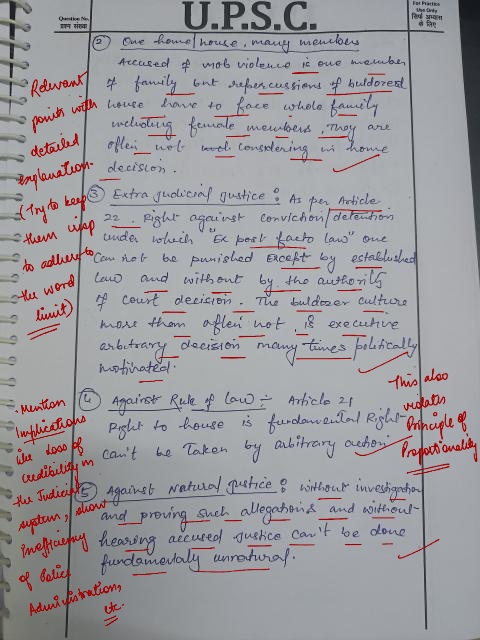 Question No.
प्रश्न संख्या
U.P.S.C.
For Practice
Use Only
सिर्फ अभ्यास
के लिए
② One home/house, many members
Accused of mob violence is one member
of family but repercussions of buldozed
house have to face whole family
including female members. They are
often not considering in home
decision.
③ Extra judicial justice : As per Article
22. Right against conviction/detention
under which "Ex post facto law" one
can not be punished except by established
law and without by the authority
of court decision. The buldozer culture
more them often not, is executive
arbitrary decision many times politically
motivated.
④ Against Rule of law :- Article 21
Right to house is fundamental Right
can't be taken by arbitrary action
⑤ Against Natural justice : without investigation
and proving such allegations and without
hearing accused justice can't be done
fundamentaly unnatural.
Relevant
points with
detailed
explanation.
(Try to keep
them crisp
to adhere to
the word
limit)
This also
violates
Principle of
Proportionality
• Mention
Implications
like Loss of
credibility in
the Judicial
system, show
inefficiency
of Police
Administration,
etc.